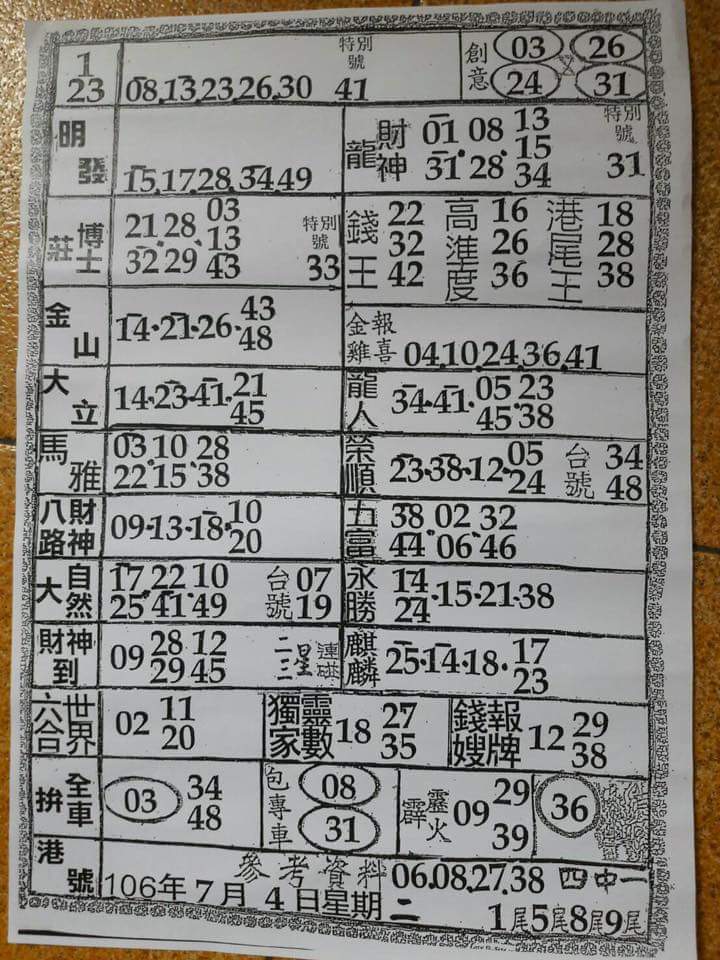 1
23
08,13,23,26,30
特別號
41
創意
03 26
24 31
明發
15,17,28,34,49
龍
財神
01 08 13
15
31 28 34
特別號
31
莊
博士
21 28 03
13
32 29 43
特別號
33
錢王
22
32
42
高進度
16
26
36
港尾王
18
28
38
金山
14·21·26·43
48
金雞報喜
04,10,24,36,41
大立
14·23·41·21
45
龍人
34·41·05 23
45 38
馬雅
03 10 28
22 15 38
榮順
23·38·12·05
24
台號
34
48
八路財神
09·13·18·10
20
五富
38 02 32
44 06 46
大自然
17 22 10
25 41 49
台號
07
19
永勝
14
24·15·21·38
財神到
09 28 12
29 45
二三星連碰
麒麟
25·14·18·17
23
六合世界
02 11
20
獨家靈數
18 27
35
錢嫂報牌
12 29
38
拚全車
03 34
48
包專車
08
31
霹靂火
09 29
39
36
港號
參考資料
06,08,27,38 四中一
106年7月4日星期二
1尾5尾8尾9尾